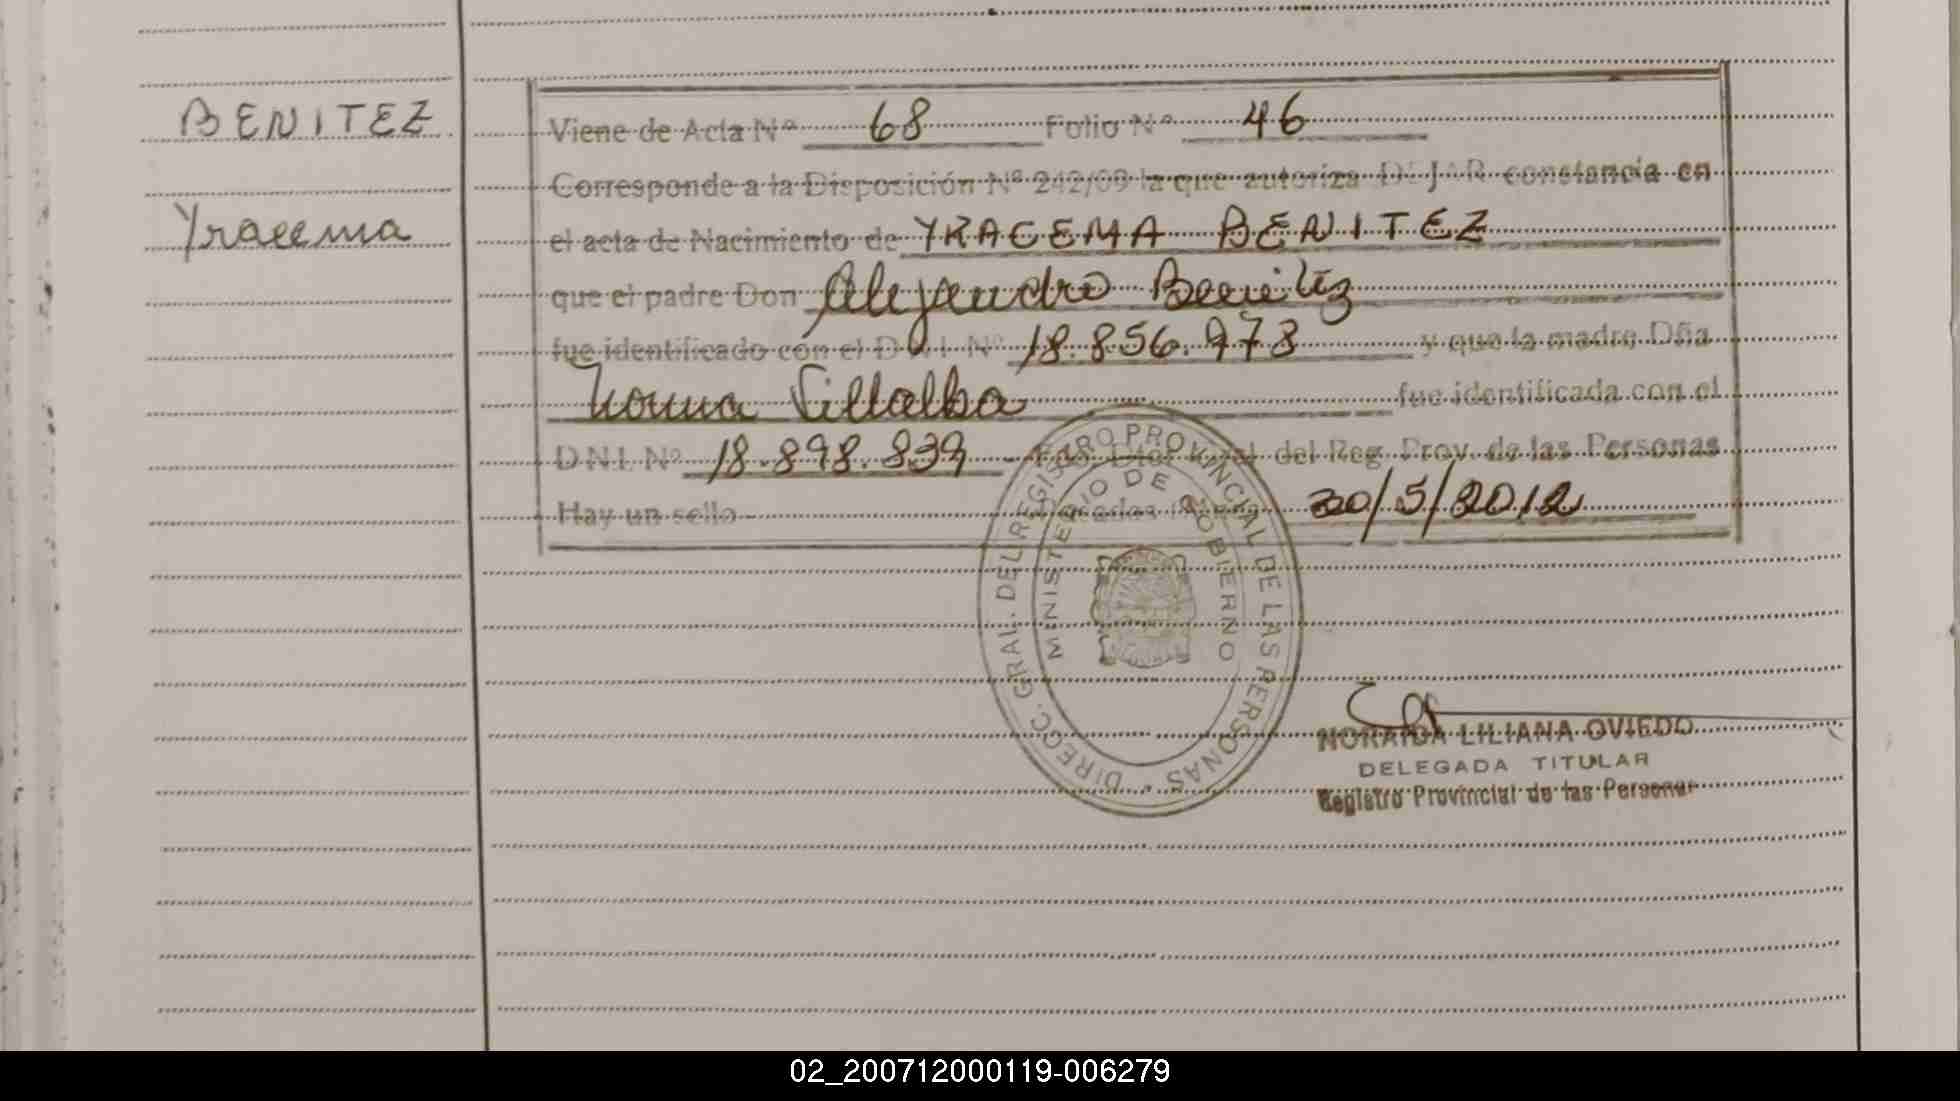 BENITEZ
Yracema
Viene de Acta Nº 68 Folio Nº 46
Corresponde a la Disposición Nº 242/09 la que autoriza DEJAR constancia en
el acta de Nacimiento de YRACEMA BENITEZ
que el padre Don Alejandro Benitez
fue identificado con el D N I Nº 18.856.973 y que la madre Dña
Norma Villalba fue identificada con el
D N I. Nº 18.898.839 - Fdo. Dtor Gral del Reg. Prov. de las Personas
Hay un sello 30/5/2012
DIRECC. GRAL. DEL REGISTRO PROVINCIAL DE LAS PERSONAS
MINISTERIO DE GOBIERNO
NORAIDA LILIANA OVIEDO
DELEGADA TITULAR
Registro Provincial de las Personas
02_200712000119-006279